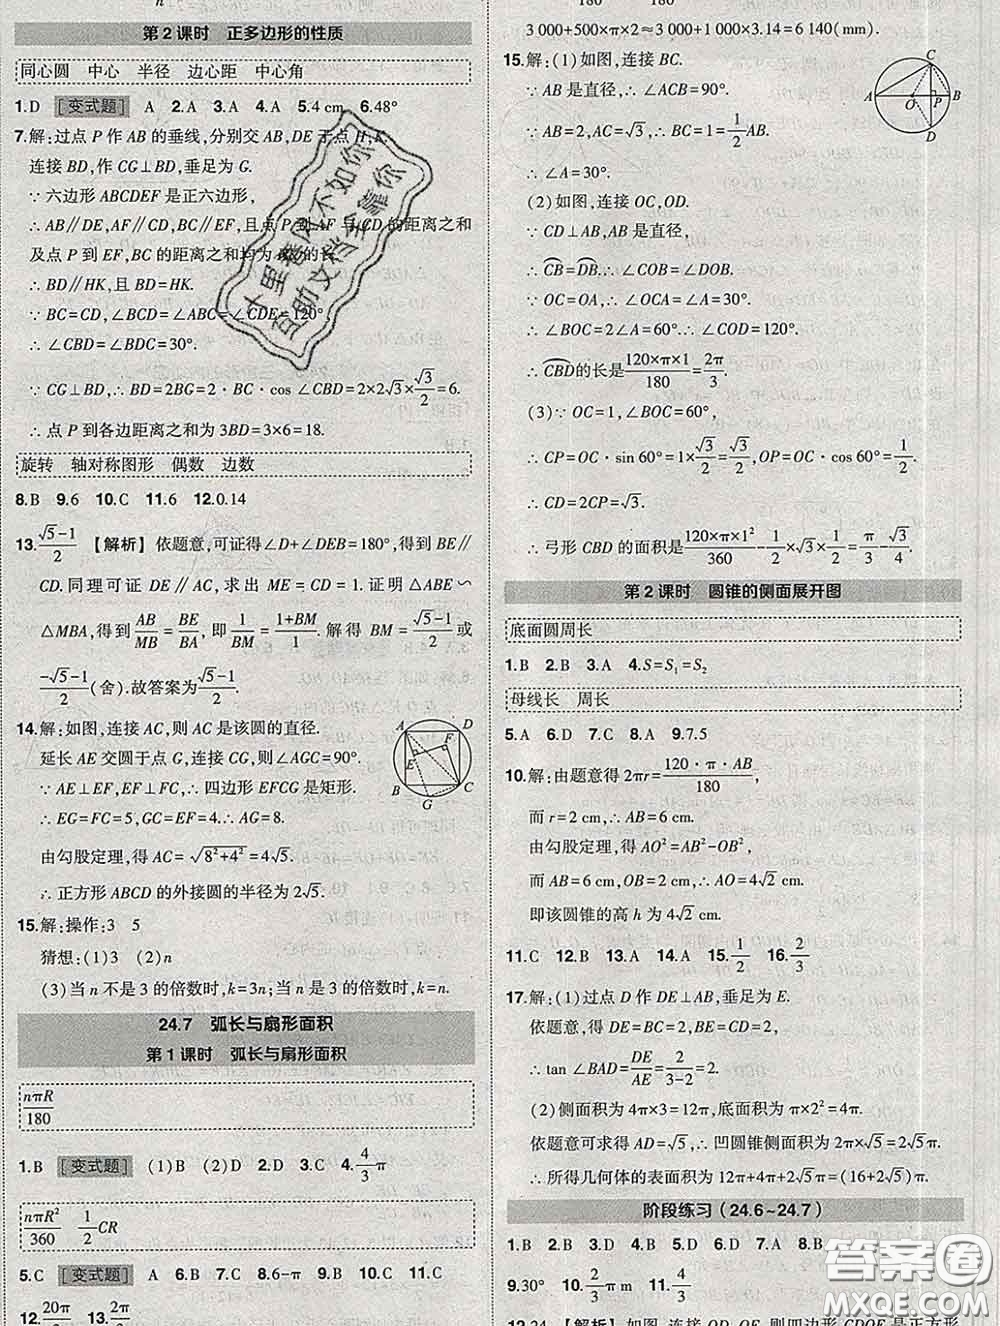 n
第2课时 正多边形的性质
同心圆 中心 半径 边心距 中心角
1.D [变式题] A 2.A 3.A 4.A 5.4 cm 6.48°
7.解:过点 P 作 AB 的垂线,分别交 AB,DE 于点 H,K,
连接 BD,作 CG⊥BD,垂足为 G.
∵六边形 ABCDEF 是正六边形,
∴AB∥DE,AF∥CD,BC∥EF,且点 P 到 AF 与 CD 的距离之和
及点 P 到 EF,BC 的距离之和均为 的长.
∴BD∥HK,且 BD=HK.
∵BC=CD,∠BCD=∠ABC=∠CDE=120°
∴∠CBD=∠BDC=30°.
∵CG⊥BD,∴BD=2BG=2·BC·cos ∠CBD=2×2√3×√3/2=6.
∴点 P 到各边距离之和为 3BD=3×6=18.
旋转 轴对称图形 偶数 边数
8.B 9.6 10.C 11.6 12.0.14
13.(√5-1)/2 【解析】依题意,可证得∠D+∠DEB=180°,得到BE∥
CD.同理可证 DE∥AC,求出 ME=CD=1.证明△ABE∽
△MBA,得到AB/MB=BE/BA,即1/BM=(1+BM)/1.解得 BM=(√5-1)/2或
(-√5-1)/2(舍).故答案为(√5-1)/2.
14.解:如图,连接 AC,则 AC 是该圆的直径.
延长 AE 交圆于点 G,连接 CG,则∠AGC=90°.
∵AE⊥EF,EF⊥FC,∴四边形 EFCG 是矩形.
∴EG=FC=5,GC=EF=4.∴AG=8.
由勾股定理,得 AC=√(8²+4²)=4√5.
∴正方形 ABCD 的外接圆的半径为 2√5.
A D F E B G C
15.解:操作:3 5
猜想:(1)3 (2)n
(3)当 n 不是 3 的倍数时,k=3n;当 n 是 3 的倍数时,k=n.
24.7 弧长与扇形面积
第1课时 弧长与扇形面积
nπR/180
1.B [变式题] (1)B (2)D 2.D 3.C 4.4/3π
nπR²/360 1/2CR
5.C [变式题] A 6.B 7.B 8.6-π 9.B 10.C 11.C
12.20π 13.2π
3 000+500×π×2≈3 000+1 000×3.14=6 140(mm).
15.解:(1)如图,连接 BC.
∵AB 是直径,∴∠ACB=90°.
∵AB=2,AC=√3,∴BC=1=1/2AB.
∴∠A=30°.
(2)如图,连接 OC,OD.
∵CD⊥AB,AB 是直径,
∴CB=DB.∴∠COB=∠DOB.
∵OC=OA,∴∠OCA=∠A=30°.
∴∠BOC=2∠A=60°.∴∠COD=120°.
∴CBD的长是(120×π×1)/180=2π/3.
(3)∵OC=1,∠BOC=60°,
∴CP=OC·sin 60°=1×√3/2=√3/2,OP=OC·cos 60°=1/2.
∴CD=2CP=√3.
∴弓形 CBD 的面积是(120×π×1²)/360-1/2×1/2×√3=π/3-√3/4.
C A O P B D
第2课时 圆锥的侧面展开图
底面圆周长
1.B 2.B 3.A 4.S=S₁=S₂
母线长 周长
5.A 6.D 7.C 8.A 9.7.5
10.解:由题意得 2πr=(120·π·AB)/180,
而 r=2 cm,∴AB=6 cm.
由勾股定理,得 AO²=AB²-OB²,
而 AB=6 cm,OB=2 cm,∴AO=4√2 cm.
即该圆锥的高 h 为 4√2 cm.
11.C 12.B 13.A 14.A 15.1/2 16.2/3
17.解:(1)过点 D 作 DE⊥AB,垂足为 E.
依题意,得 DE=BC=2,BE=CD=2.
∴tan ∠BAD=DE/AE=2/(3-2)=2.
(2)侧面积为 4π×3=12π,底面积为 π×2²=4π.
依题意可求得 AD=√5,∴凹圆锥侧面积为 2π×√5=2√5π.
∴所得几何体的表面积为 12π+4π+2√5π=(16+2√5)π.
阶段练习(24.6~24.7)
1.B 2.B 3.D 4.A 5.D 6.D 7.A 8.B
9.30° 10.2/3π m 11.4/3
12.24 【解析】如图,连接 OC,OD,OE,则四边形 CDOE 是正方形
十里春风不如你
互助文档全靠你
答案圈
MXQE.COM